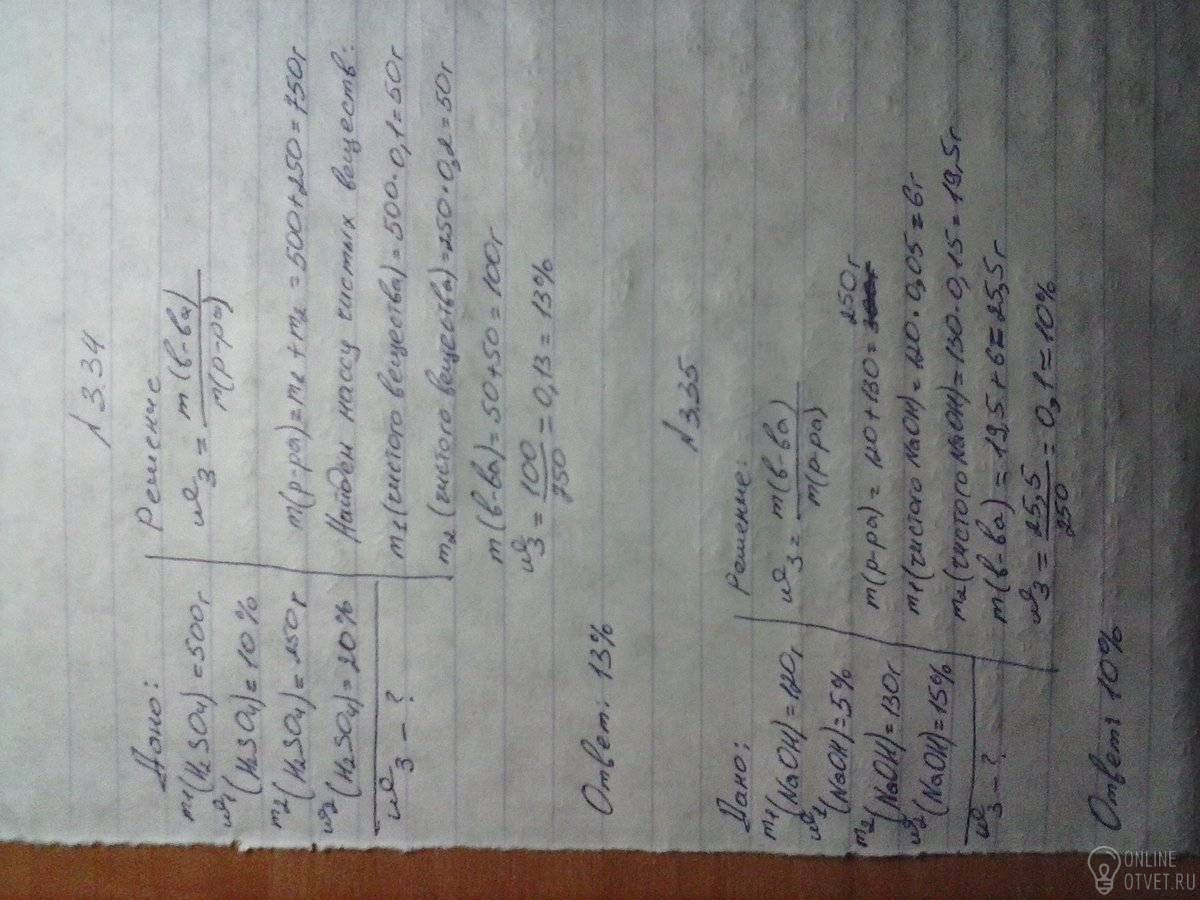 № 3.34
Дано:
m1(H2SO4)=500г
ω1(H2SO4)=10%
m2(H2SO4)=250г
ω2(H2SO4)=20%
ω3 - ?
Решение
ω3 = m(в-ва)
m(р-ра)
m(р-ра)=m1+m2=500+250=750г
Найдем массу чистых веществ:
m1(чистого вещества)=500·0,1=50г
m2(чистого вещества)=250·0,2=50г
m(в-ва)=50+50=100г
ω3 = 100 = 0,13=13%
750
Ответ: 13%
№ 3.35
Дано:
m1(NaOH)=120г
ω1(NaOH)=5%
m2(NaOH)=130г
ω2(NaOH)=15%
ω3 - ?
Решение:
ω3 = m(в-ва)
m(р-ра)
m(р-ра)=120+130=250г
m1(чистого NaOH)=120·0,05=6г
m2(чистого NaOH)=130·0,15=19,5г
m(в-ва)=19,5+6=25,5г
ω3 = 25,5 = 0,1=10%
250
Ответ: 10%
ONLINE
OTVET.RU